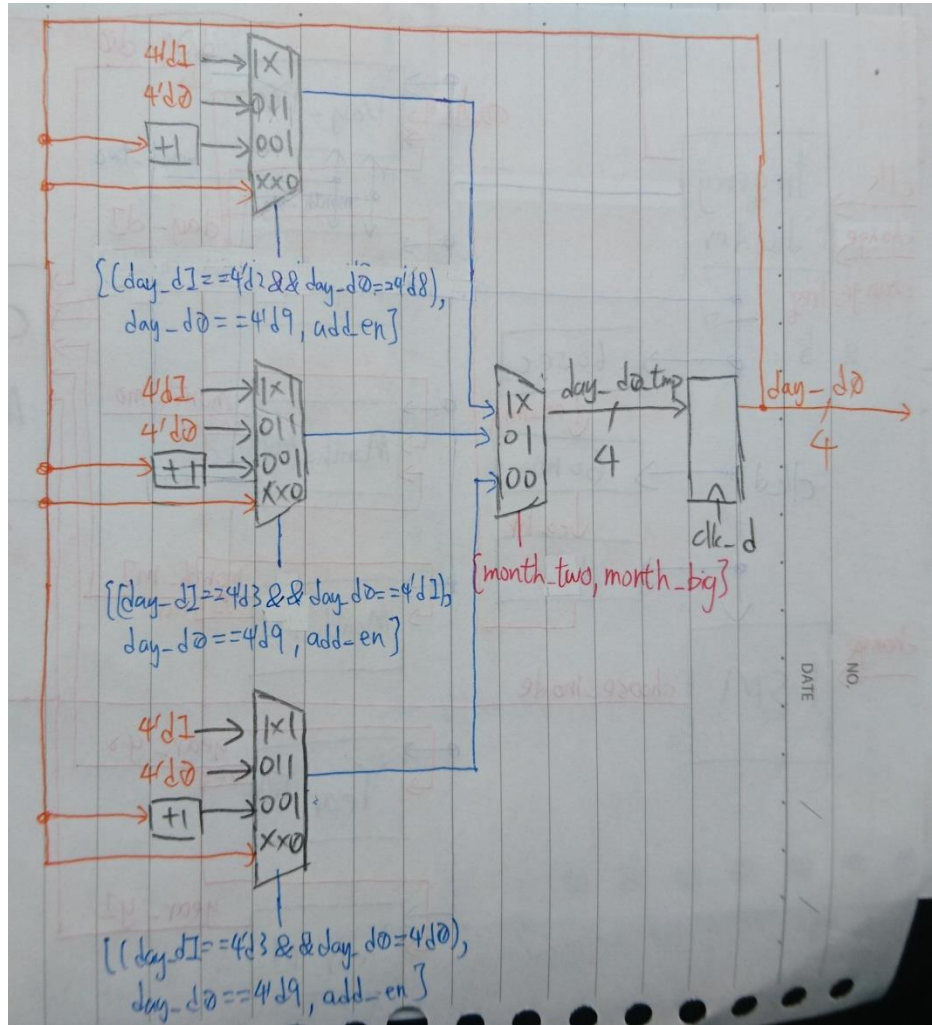 4'd1
1X1
4'd0
011
+1
001
XX0
{(day_d1==4'd2 && day_d0==4'd8),
day_d0==4'd9, add_en}
4'd1
1X1
4'd0
011
+1
001
XX0
{(day_d1==4'd3 && day_d0==4'd1),
day_d0==4'd9, add_en}
4'd1
1X1
4'd0
011
+1
001
XX0
{((day_d1==4'd3 && day_d0=4'd0),
day_d0==4'd9, add_en}
1X
01
00
{month_two, month_big}
day_d0_tmp
4
clk_d
day_d0
4
NO.
DATE